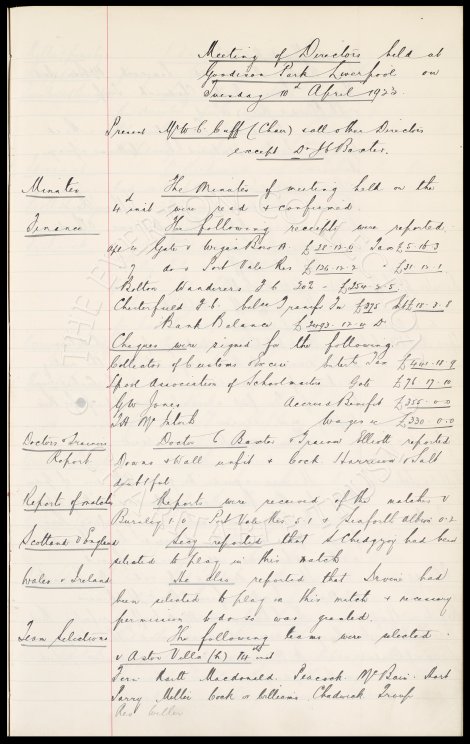 Meeting of Directors held at
Goodison Park Liverpool on
Tuesday 10th April 1923.
Present Mr W C Cuff (Chair) & all other Directors
except Dr J C Baxter.
Minutes
The Minutes of meeting held on the
4th inst were read & confirmed.
Finance
The following receipts were reported.
Gate v Wigan Boro A. £28-13-0 Tax £5-16-3
7 do v Port Vale Res £136-12-2 " £31-12-1
Bolton Wanderers F C 20% - £254-2-5
Chesterfield F C balce Transfer £375
Bank Balance £2493-12-4 D
Cheques were signed for the following.
Collector of Customs & Excise Entert Tax £441-18-9
Lpool Association of Schoolmasters Gate £76-17-10
G W Jones Accrued Benefit £355-0-0
T H McIntosh Wages &c £330-0-0
Doctors & Trainers
Report
Doctor C Baxter & Trainer Elliott reported
Downs & Wall unfit & Cock Harrison & Salt
doubtful
Reports of matches
Reports were received of the matches v
Burnley 1/0, Port Vale Res 5.1 & Seaforth Albion 0-2
Scotland v England
Secy reported that S Chedgzoy had been
selected to play in this match
Wales v Ireland
He also reported that Irvine had
been selected to play in this match & necessary
permission to do so was granted.
Team Selections
The following teams were selected.
v Aston Villa (h) 14th inst
Fern Raitt Macdonald. Peacock. McBain. Hart
Parry Miller Cock or Williams. Chadwick Troup
Res